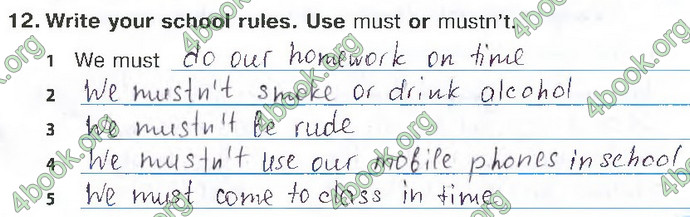 12. Write your school rules. Use must or mustn't.
1 We must do our homework on time
2 We mustn't smoke or drink alcohol
3 We mustn't be rude
4 We mustn't use our mobile phones in school
5 We must come to class in time
4book.org